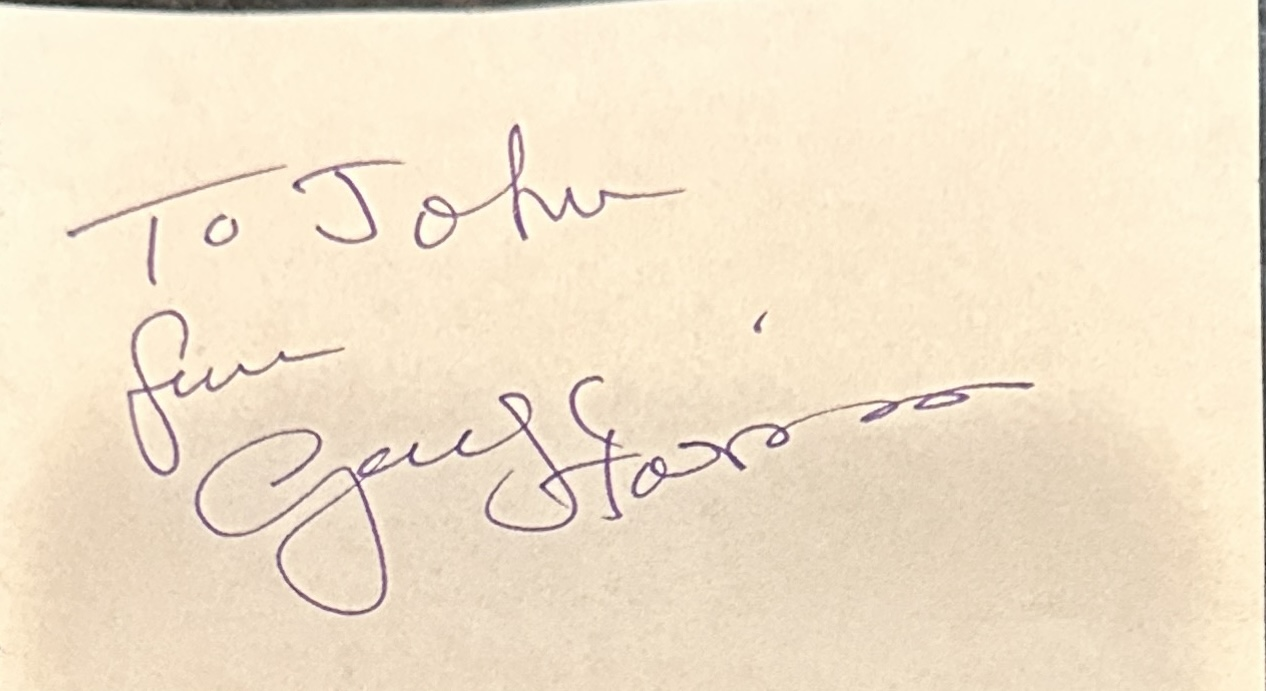 To John
from
George Harrison